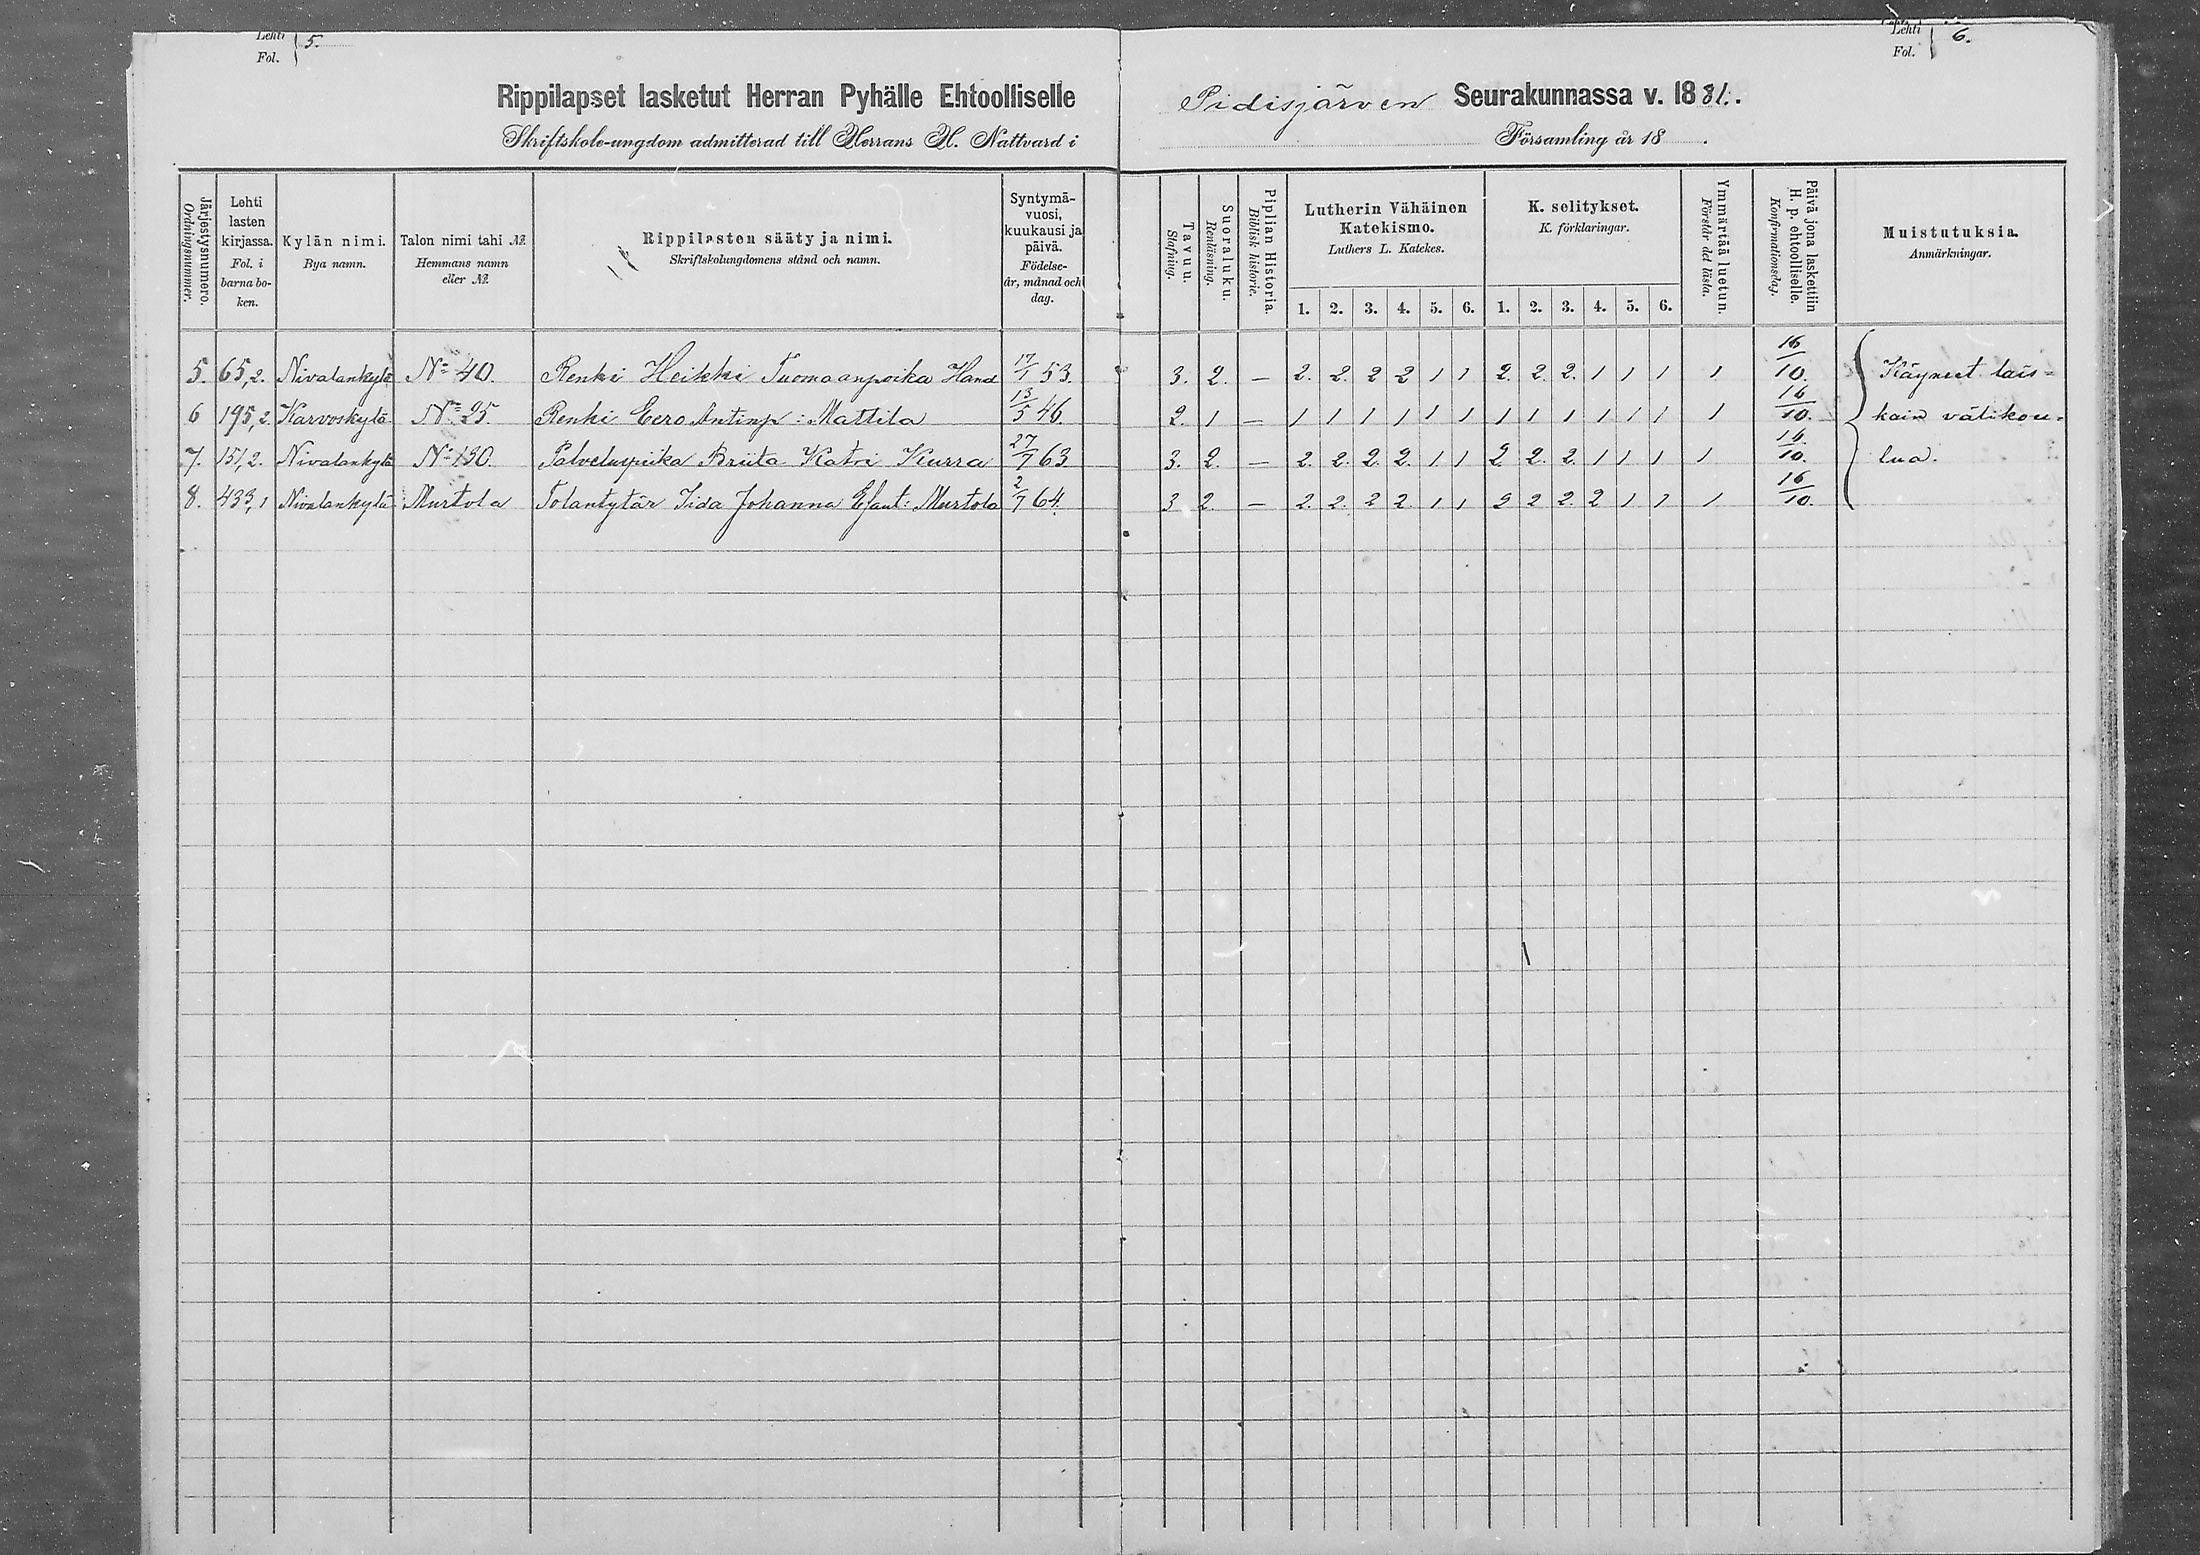 Lehti
Fol. 5.
Rippilapset lasketut Herran Pyhälle Ehtoolliselle
Skriftskole-ungdom admitterad till Herrans H. Nattvard i
Järjestysnumero.
Ordningsnummer.
Lehti
lasten
kirjassa.
Fol. i
barna bo-
ken.
Kylän nimi.
Bya namn.
Talon nimi tahi №
Hemmans namn
eller №.
Rippilasten sääty ja nimi.
Skriftskolungdomens stånd och namn.
Syntymä-
vuosi,
kuukausi ja
päivä.
Födelse-
år, månad och
dag.
5. 65,2. Nivalankylä No 40. Renki Heikki Tuomaanpoika Hand 17/1 53.
6 195,2. Karvoskylä No 25. Renki Eero Antinp: Mattila 13/5 46.
7. 151,2. Nivalankylä No 130. Palveluspiika Briita Katri Kurra 27/7 63
8. 433,1 Nivalankylä Murtola Tolantytär Iida Johanna Esaut: Murtola 2/7 64.
Lehti
Fol. 6.
Pidisjärven Seurakunnassa v. 1881.
Församling år 18 .
Tavuu.
Stafning.
Suoraluku.
Renläsning.
Piplian Historia.
Biblisk historie.
Lutherin Vähäinen
Katekismo.
Luthers L. Katekes.
1. 2. 3. 4. 5. 6.
K. selitykset.
K. förklaringar.
1. 2. 3. 4. 5. 6.
Ymmärtää luetun.
Förstår det lästa.
Päivä jona laskettiin
H. p. ehtoolliselle.
Konfirmationsdag.
Muistutuksia.
Anmärkningar.
3. 2. — 2. 2. 2 2 1 1 2. 2. 2. 1 1 1 1 16/10. Käyneet lais-
2. 1 — 1 1 1 1 1 1 1 1 1 1 1 1 1 16/10. kain välikou-
3. 2. — 2. 2. 2. 2. 1 1 2. 2. 2. 1 1 1 1 16/10. lua.
3 2. — 2. 2. 2 2. 1 1 2 2 2. 2 1 1 1 16/10.